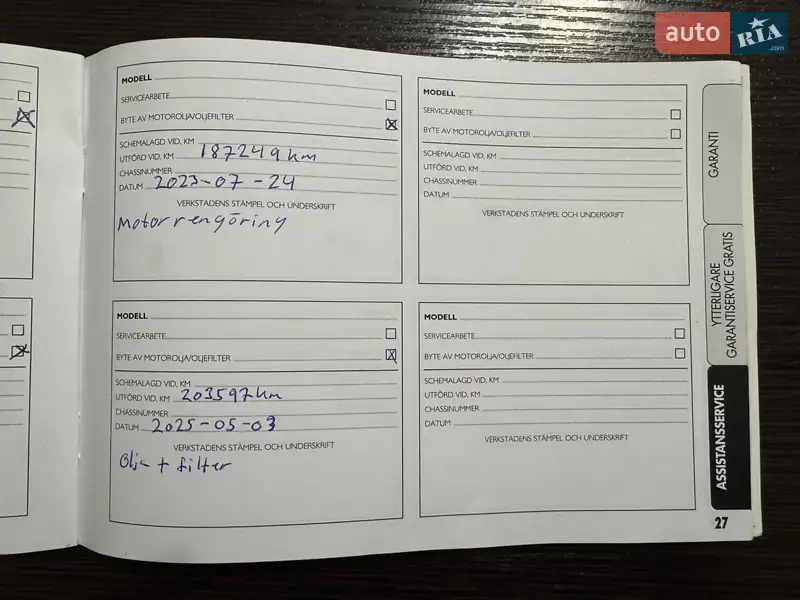 auto RIA .com
MODELL
SERVICEARBETE
BYTE AV MOTOROLJA/OLJEFILTER
SCHEMALAGD VID, KM
UTFÖRD VID, KM 187249 km
CHASSINUMMER
DATUM 2023-07-24
VERKSTADENS STÄMPEL OCH UNDERSKRIFT
Motorrengöring
MODELL
SERVICEARBETE
BYTE AV MOTOROLJA/OLJEFILTER
SCHEMALAGD VID, KM
UTFÖRD VID, KM
CHASSINUMMER
DATUM
VERKSTADENS STÄMPEL OCH UNDERSKRIFT
MODELL
SERVICEARBETE
BYTE AV MOTOROLJA/OLJEFILTER
SCHEMALAGD VID, KM
UTFÖRD VID, KM 203597 km
CHASSINUMMER
DATUM 2025-05-03
VERKSTADENS STÄMPEL OCH UNDERSKRIFT
Olja + filter
MODELL
SERVICEARBETE
BYTE AV MOTOROLJA/OLJEFILTER
SCHEMALAGD VID, KM
UTFÖRD VID, KM
CHASSINUMMER
DATUM
VERKSTADENS STÄMPEL OCH UNDERSKRIFT
GARANTI
YTTERLIGARE
GARANTISERVICE GRATIS
ASSISTANSSERVICE
27